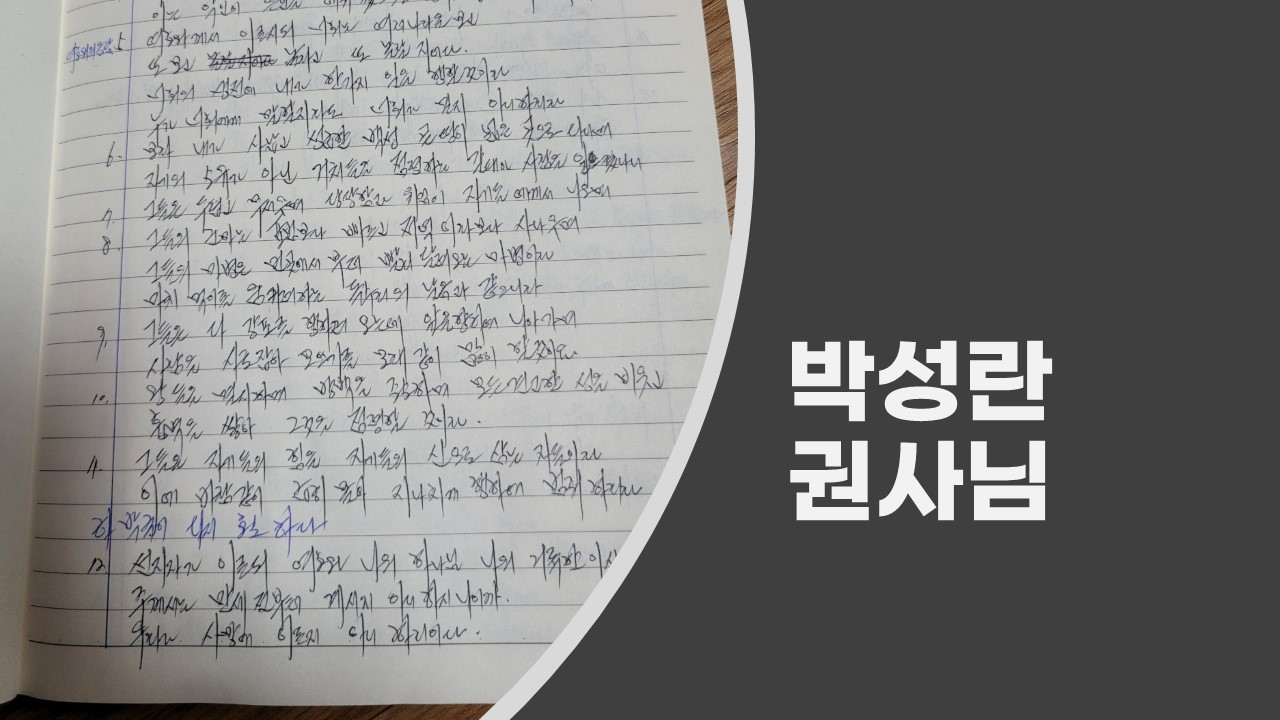 이는
여호와의 응답 5. 여호와께서 이르시되 너희는 여러나라를 보고
또 보고 놀라고 또 놀랄 지어다.
너희의 생전에 내가 한가지 일을 행할것이라
누가 너희에게 말할지라도 너희가 믿지 아니하리라
6. 보라 내가 사납고 성급한 백성 곧 땅이 넓은 곳으로 다니며
자기의 소유가 아닌 거처들을 점령하는 갈대아 사람을
7. 그들은 두렵고 무서우며 당당함과 위엄이 자기들에게서 나오며
8. 그들의 군마는 표범보다 빠르고 저녁 이리보다 사나우며
그들의 마병은 먼곳에서부터 빨리 달려오는 마병이라
마치 먹이를 움키려하는 독수리의 날음과 같으니라
9. 그들은 다 강포를 행하러 오는데 앞을향하여 나아가며
사람을 사로잡아 모으기를 모래 같이 많이 할것이요
10. 왕들을 멸시하며 방백을 조소하며 모든견고한 성을 비웃고
흉벽을 쌓아 그것을 점령할 것이라.
11. 그들은 자기들의 힘을 자기들의 신으로 삼는 자들이라
이에 바람같이 급히 몰아 지나치게 행하여 범죄 하리라
하박국이 다시 호소 하다
12. 선지자가 이르되 여호와 나의 하나님 나의 거룩한 이시
주께서는 만세 전부터 계시지 아니 하시니이까.
우리가 사망에 이르지 아니 하리이다.
박성란
권사님